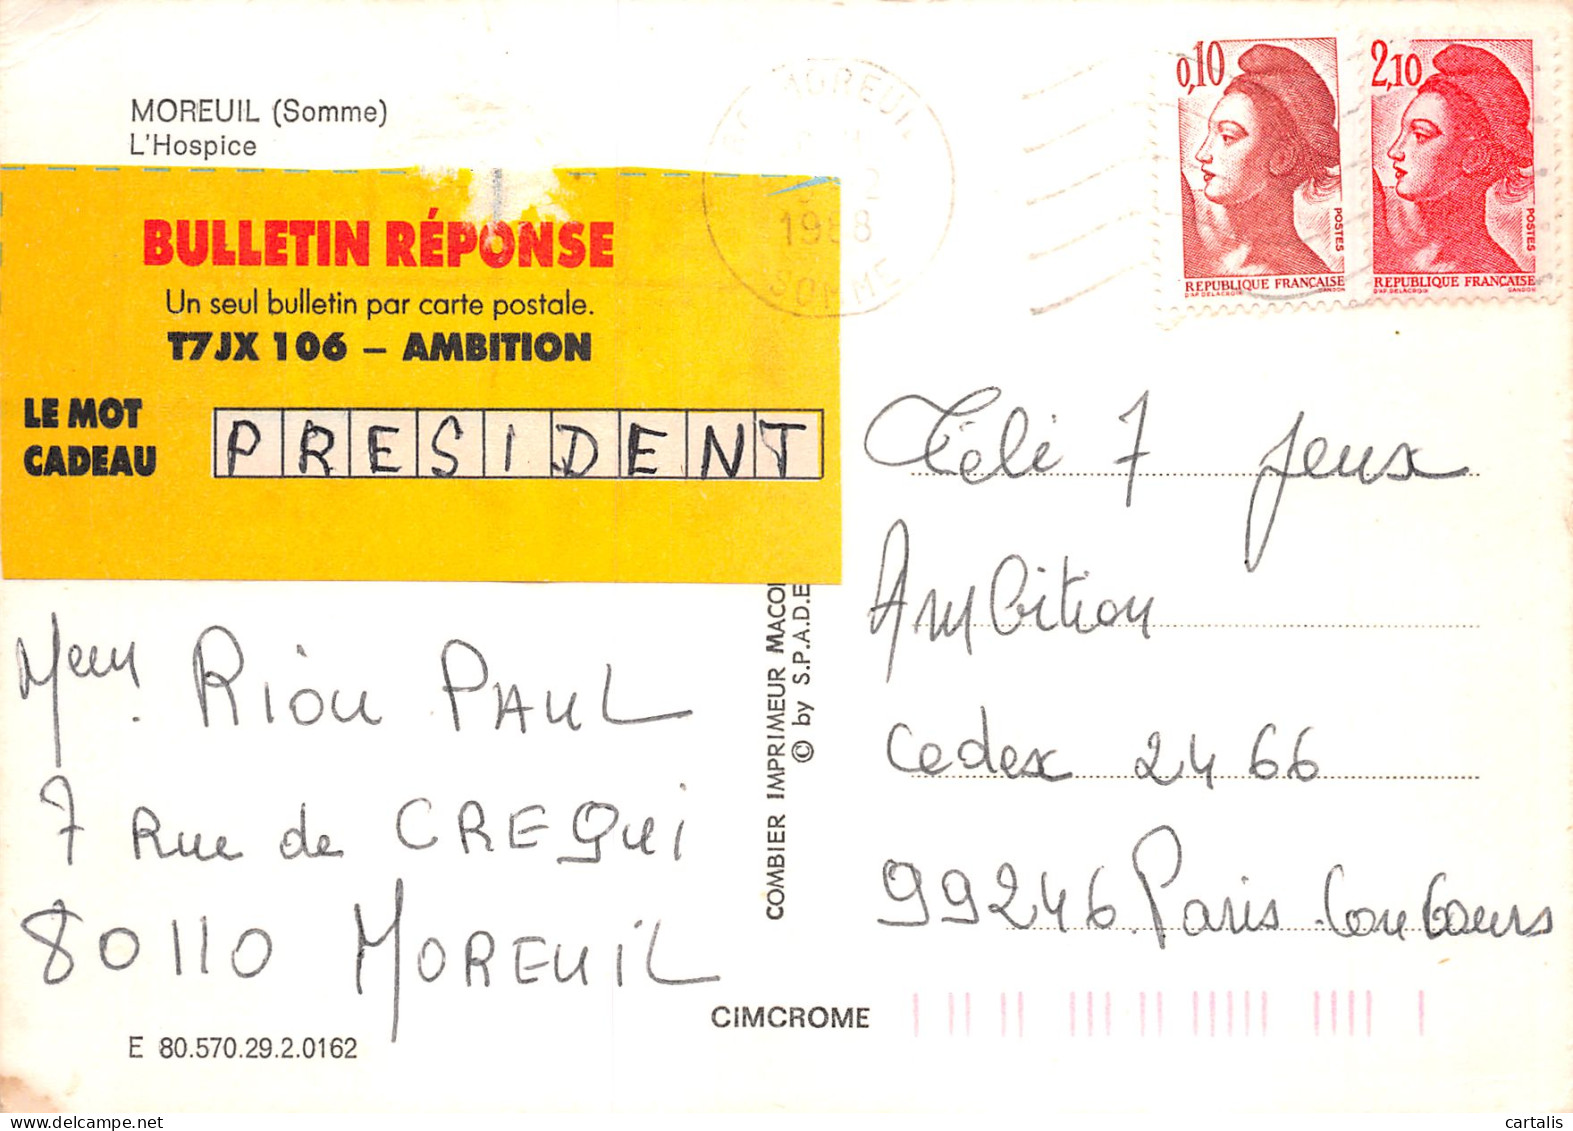 MOREUIL (Somme)
L'Hospice
BULLETIN RÉPONSE
Un seul bulletin par carte postale.
T7JX 106 – AMBITION
LE MOT
CADEAU
PRESIDENT
Mem. RIOU PAUL
7 Rue de CREQui
80110 MOREUIL
E 80.570.29.2.0162
COMBIER IMPRIMEUR MACO
© by S.P.A.D.E
CIMCROME
MOREUIL
1988
SOMME
0,10
POSTES
REPUBLIQUE FRANÇAISE
D'AP. DELACROIX GANDON
2,10
POSTES
REPUBLIQUE FRANÇAISE
D'AP. DELACROIX GANDON
Téli 7 Jeux
Ambition
Cedex 2466
99246 Paris Concours
cartalis